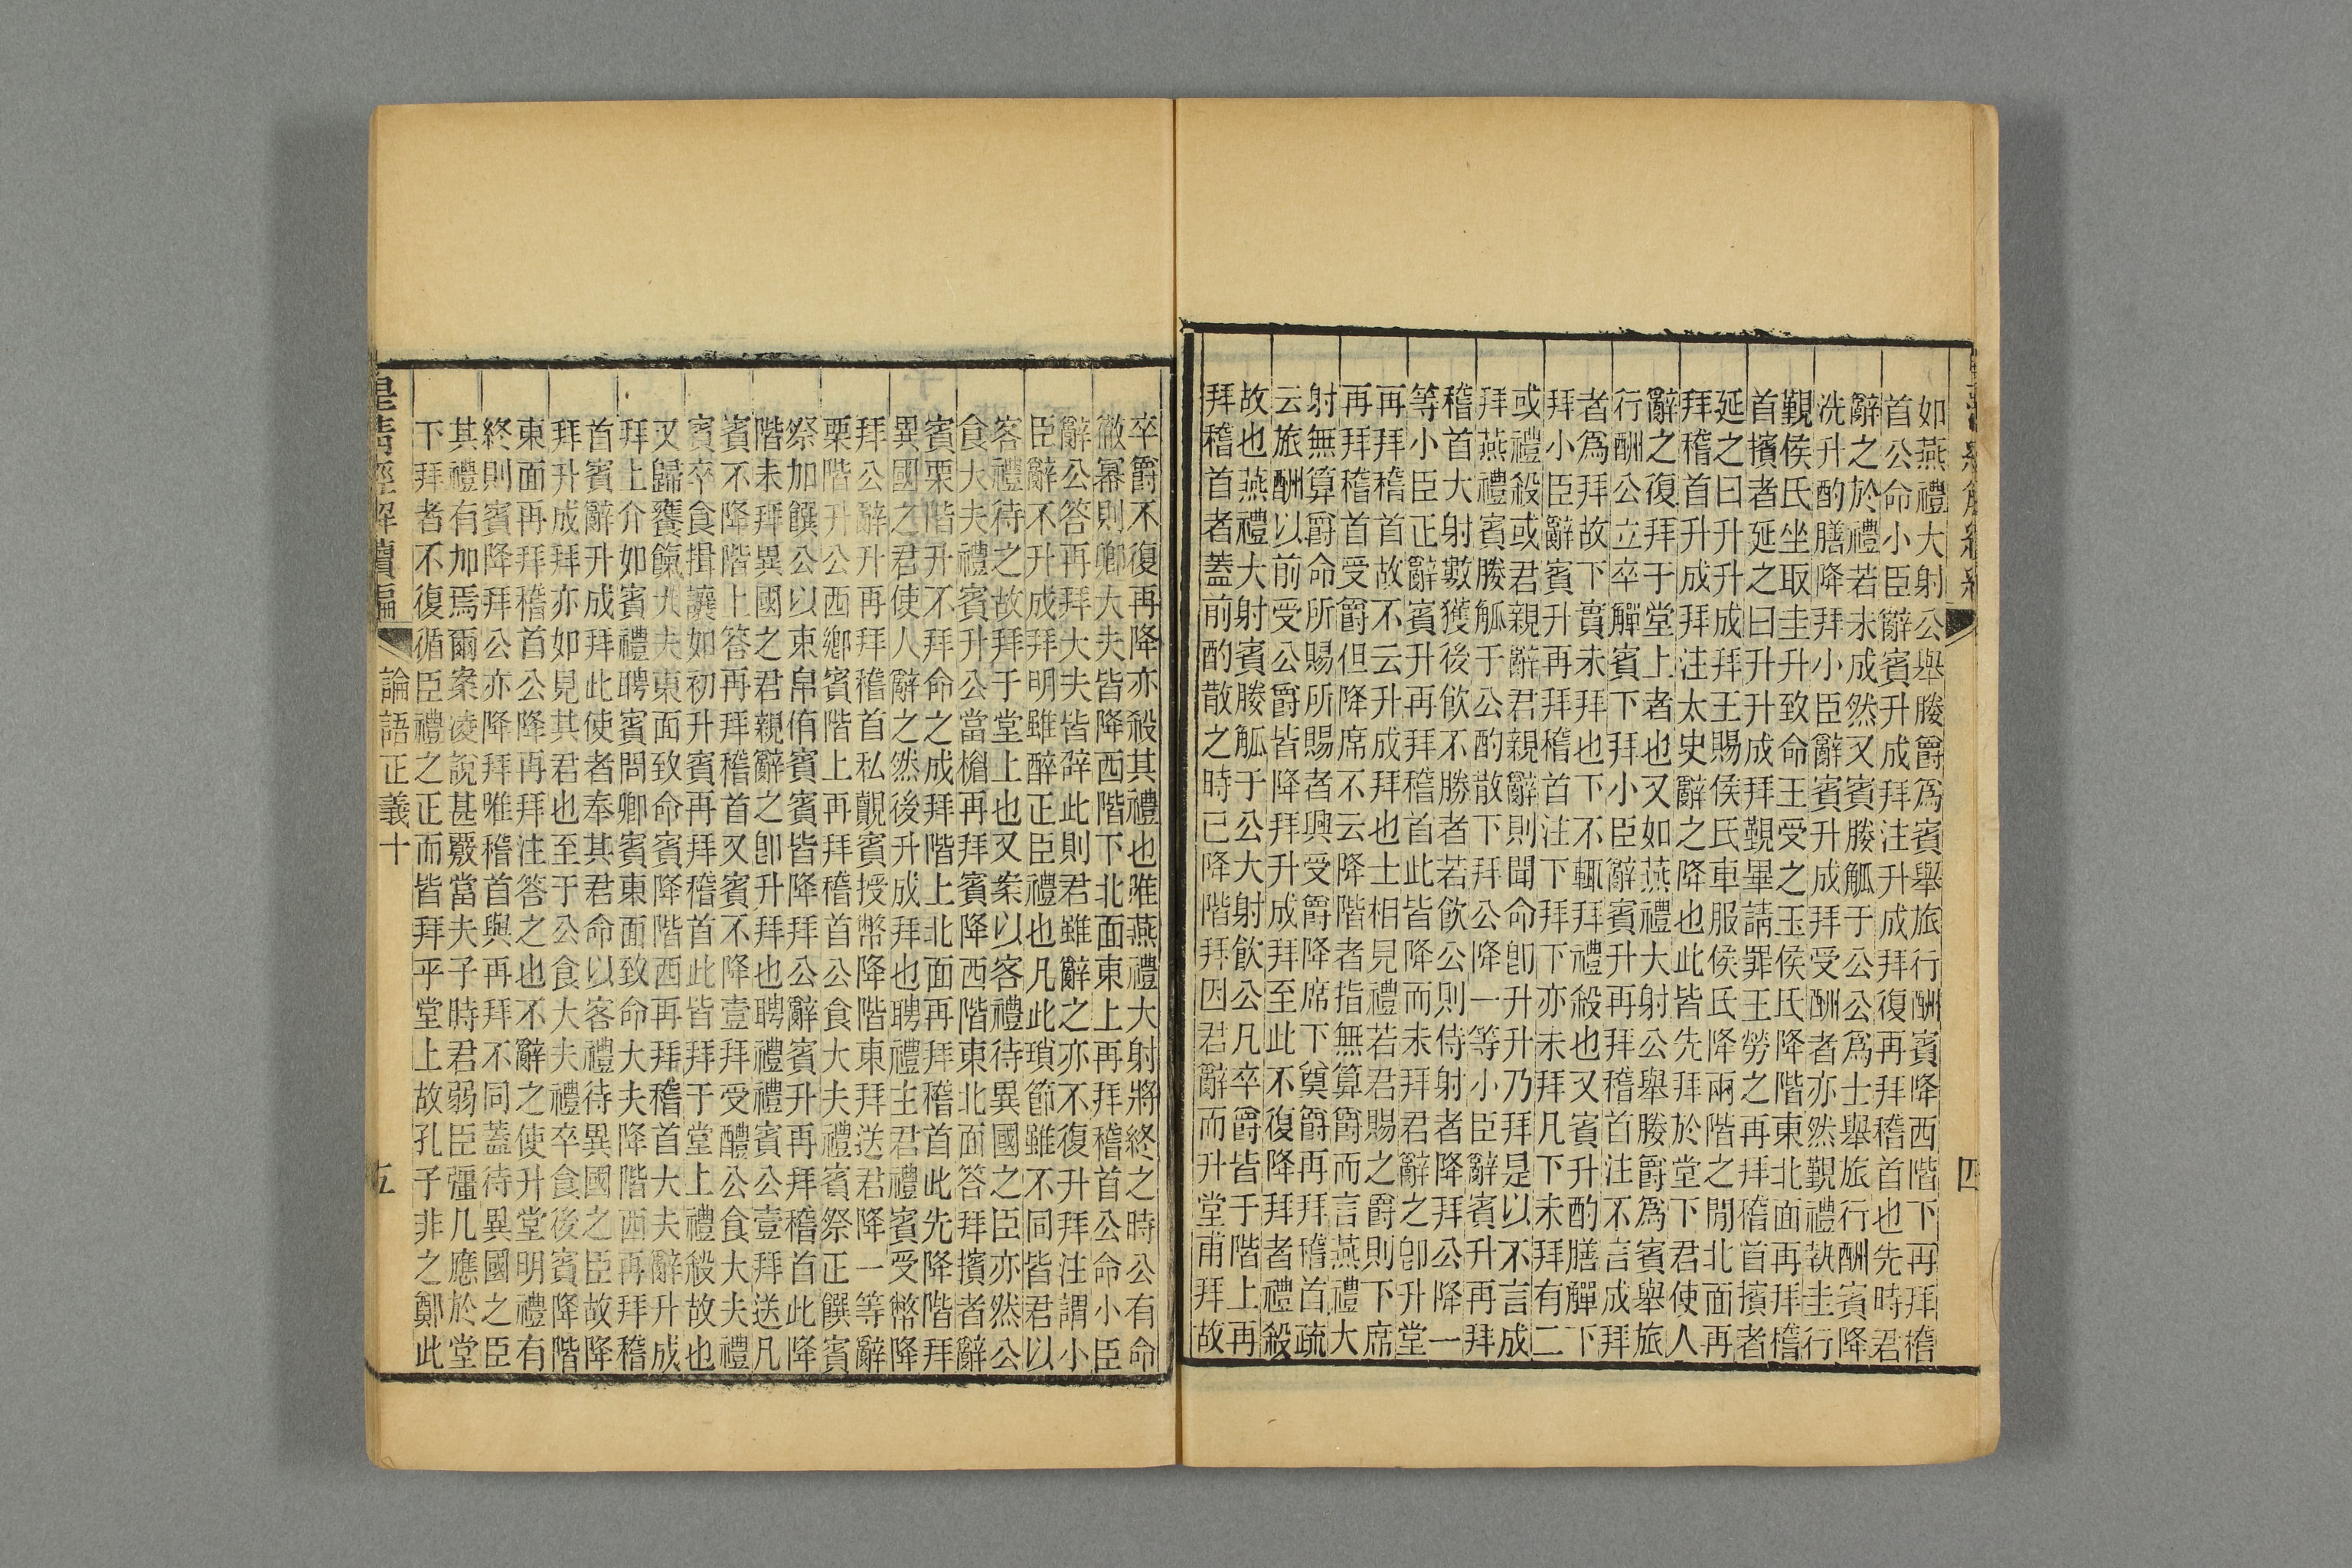 如燕禮大射公舉媵爵為賓舉旅行酬賓降西階下再拜稽
首公命小臣辭賓升成拜注升成拜復再拜稽首也先時君
辭之於禮若未成然又賓媵觚于公公為士舉旅行酬賓降
洗升酌膳降拜小臣辭賓升成拜受酬者亦然覲禮執圭行
覲侯氏坐取圭升致命王受之玉侯氏降階東北面再拜稽
首擯者延之曰升升成拜覲畢請罪王勞之再拜稽首擯者
延之曰升升成拜王賜侯氏車服侯氏降兩階之閒北面再
拜稽首升成拜注太史辭之降也此皆先拜於堂下君使人
辭之復拜于堂上者也又如燕禮大射公舉媵爵為賓舉旅
行酬公立卒觶賓下拜小臣辭賓升再拜稽首注不言成拜
者為拜故下賣未拜也下不輒拜禮殺也又賓升酌膳觶下
拜小臣辭賓升再拜稽首注下拜下亦未拜凡下未拜有二
或禮殺或君親辭君親辭則聞命卽升升乃拜是以不言成
拜燕禮賓媵觚于公酌散下拜公降一等小臣辭賓升再拜
稽首大射數獲後飲不勝者若飲公則侍射者降拜公降一
等小臣正辭賓升再拜稽首此皆降而未拜君辭之卽升堂
再拜稽首故不云升成拜也士相見禮若君賜之爵則下席
再拜稽首受爵但降席不云降階者指無算爵而言燕禮大
射無算爵命所賜所賜者興受爵降席下奠爵再拜稽首疏
云旅酬以前受公爵皆降拜升成拜至此不復降拜者禮殺
故也燕禮大射賓媵觚于公大射飲公凡卒爵皆于階上再
拜稽首者蓋前酌散之時已降階拜因君辭而升堂甫拜故
四
卒爵不復再降亦殺其禮也唯燕禮大射將終之時公有命
徹冪則卿大夫皆降西階下北面東上再拜稽首公命小臣
辭公答再拜大夫皆辟此則君雖辭之亦不復升拜注謂小
臣辭不升成拜明雖醉正臣禮也凡此瑣節雖不同皆君以
客禮待之故拜于堂上也又案以客禮待異國之臣亦然公
食大夫禮賓升公當楣再拜賓降西階東北面答拜擯者辭
賓栗階升不拜命之成拜階上北面再拜稽首此先降階拜
異國之君使人辭之然後升成拜也聘禮主君禮賓受幣降
拜公辭升再拜稽首私覿賓授幣降階東拜送君降一等辭
栗階升公西鄉賓階上再拜稽首公食大夫禮賓祭正饌賓
祭加饌公以束帛侑賓賓皆降拜公辭賓升再拜稽首此降
階未拜異國之君親辭之卽升拜也聘禮禮賓公壹拜送凡
賓不降階上答再拜稽首又賓不降壹拜受醴公食大夫禮
賓卒食揖讓如初升賓再拜稽首此皆拜于堂上禮殺故也
又歸饔餼大夫東面致命賓降階西再拜稽首大夫辭升成
拜上介如賓禮聘賓問卿賓東面致命大夫降階西再拜稽
首賓辭升成拜此使者奉其君命以客禮待異國之臣故降
拜升成拜亦如見其君也至于公食大夫禮卒食後賓降階
東面再拜稽首公降再拜注答之也不辭之使升堂明禮有
終則賓降拜公亦降拜唯稽首與再拜不同蓋待異國之臣
其禮有加焉爾案凌說甚覈當夫子時君弱臣彊凡應於堂
下拜者不復循臣禮之正而皆拜乎堂上故孔子非之鄭此
皇清經解續編 論語正義十 五